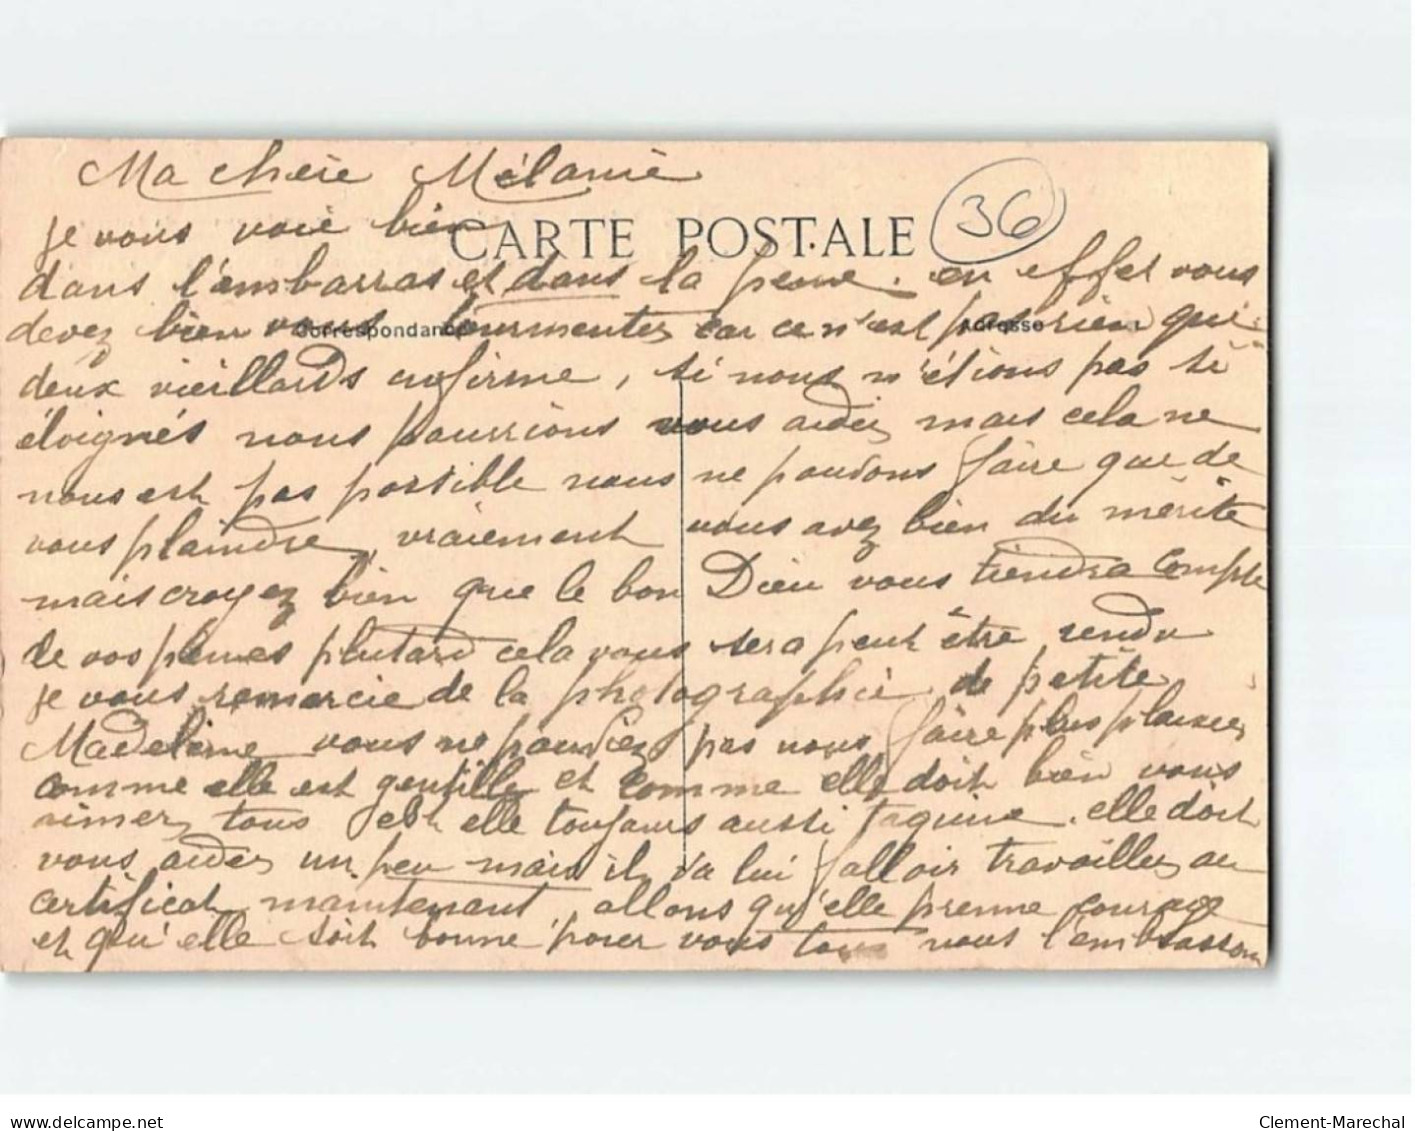 Ma chère Mélanie
36
je vous voie bien
CARTE POSTALE
dans l'embarras et dans la peine. en effet vous
Correspondance
Adresse
devez bien vous tourmenter car ce n'est pas rien que
deux vieillards infirme, si nous n'étions pas si
éloignés nous pourrions vous aider mais cela ne
nous est pas possible nous ne pouvons faire que de
vous plaindre, vraiement vous avez bien du mérite
mais croyez bien que le bon Dieu vous tiendra compte
de vos peines plutard cela vous sera peut être rendu
je vous remercie de la photographie de petite
Madeleine vous ne pouviez pas nous faire plus plaisir
comme elle est gentille et comme elle doit bien vous
aimer tous est elle toujours aussi taquine. elle doit
vous aider un peu mais il va lui falloir travailler au
certificat maintenant. allons qu'elle prenne courage
et qu'elle soit bonne pour vous tous nous l'embrassons
delcampe.net
Clement-Marechal